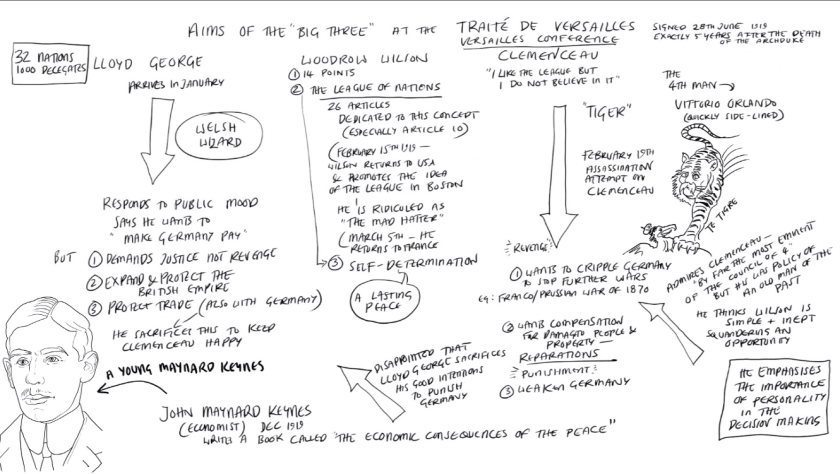 AIMS OF THE "BIG THREE" AT THE TRAITÉ DE VERSAILLES
VERSAILLES CONFERENCE
SIGNED 28TH JUNE 1919
EXACTLY 5 YEARS AFTER THE DEATH
OF THE ARCHDUKE
32 NATIONS
1000 DELEGATES
LLOYD GEORGE
ARRIVES IN JANUARY
WELSH
WIZARD
RESPONDS TO PUBLIC MOOD
SAYS HE WANTS TO
"MAKE GERMANY PAY"
BUT ① DEMANDS JUSTICE NOT REVENGE
② EXPAND & PROTECT THE
BRITISH EMPIRE
③ PROTECT TRADE (ALSO WITH GERMANY)
HE SACRIFICES THIS TO KEEP
CLEMENCEAU HAPPY
WOODROW WILSON
① 14 POINTS
② THE LEAGUE OF NATIONS
26 ARTICLES
DEDICATED TO THIS CONCEPT
(ESPECIALLY ARTICLE 10)
(FEBRUARY 15TH 1919 —
WILSON RETURNS TO USA
& PROMOTES THE IDEA
OF THE LEAGUE IN BOSTON
HE IS RIDICULED AS
"THE MAD HATTER"
(MARCH 5TH — HE
RETURNS TO FRANCE
③ SELF-DETERMINATION
A LASTING
PEACE
CLEMENCEAU
"I LIKE THE LEAGUE BUT
I DO NOT BELIEVE IN IT"
"TIGER"
FEBRUARY 19TH
ASSASSINATION
ATTEMPT ON
CLEMENCEAU
REVENGE
① WANTS TO CRIPPLE GERMANY
TO STOP FURTHER WARS
EG: FRANCO/PRUSSIAN WAR OF 1870
② WANTS COMPENSATION
FOR DAMAGE TO PEOPLE &
PROPERTY —
REPARATIONS
PUNISHMENT
③ WEAKEN GERMANY
THE
4TH MAN
VITTORIO ORLANDO
(QUICKLY SIDE-LINED)
TIGRE
ADMIRES CLEMENCEAU -
"BY FAR THE MOST EMINENT
OF THE COUNCIL OF 4"
BUT HIS WAS POLICY OF
AN OLD MAN OF THE
PAST
HE THINKS WILSON IS
SIMPLE + INEPT
SQUANDERING AN
OPPORTUNITY
HE EMPHASISES
THE IMPORTANCE
OF PERSONALITY
IN THE
DECISION MAKING
DISAPPOINTED THAT
LLOYD GEORGE SACRIFICES
HIS GOOD INTENTIONS
TO PUNISH
GERMANY
A YOUNG MAYNARD KEYNES
JOHN MAYNARD KEYNES
(ECONOMIST) DEC 1919
WRITES A BOOK CALLED "THE ECONOMIC CONSEQUENCES OF THE PEACE"